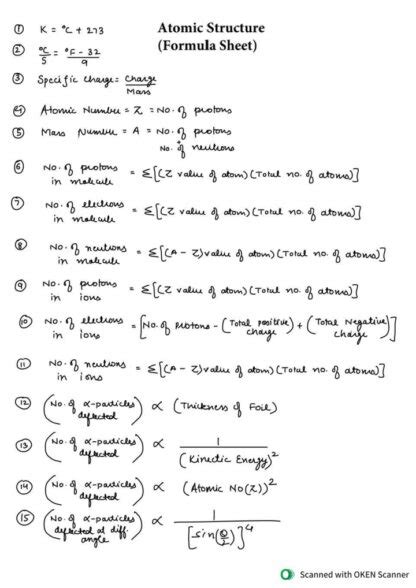 Atomic Structure
(Formula Sheet)
① K = °C + 273
② °C/5 = °F - 32/9
③ Specific Charge = Charge/Mass
④ Atomic Number = Z = No. of protons
⑤ Mass Number = A = No. of protons
+
No. of neutrons
⑥ No. of protons in molecule = Σ[(Z value of atom)(Total no. of atoms)]
⑦ No. of electrons in molecule = Σ[(Z value of atom)(Total no. of atoms)]
⑧ No. of neutrons in molecule = Σ[(A - Z) value of atom)(Total no. of atoms)]
⑨ No. of protons in ions = Σ[(Z value of atom)(Total no. of atoms)]
⑩ No. of electrons in ions = [No. of Protons - (Total positive charge) + (Total Negative charge)]
⑪ No. of neutrons in ions = Σ[(A - Z) value of atom)(Total no. of atoms)]
⑫ (No. of α-particles deflected) ∝ (Thickness of Foil)
⑬ (No. of α-particles deflected) ∝ 1/(Kinetic Energy)²
⑭ (No. of α-particles deflected) ∝ (Atomic No(Z))²
⑮ (No. of α-particles deflected at diff. angle) ∝ 1/[sin(θ/2)]⁴
Scanned with OKEN Scanner